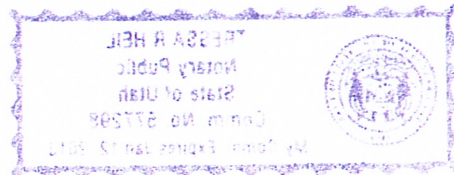 TRESSA R HEIL
Notary Public
State of Utah
Comm. No 577298
My Comm. Expires Jan 12